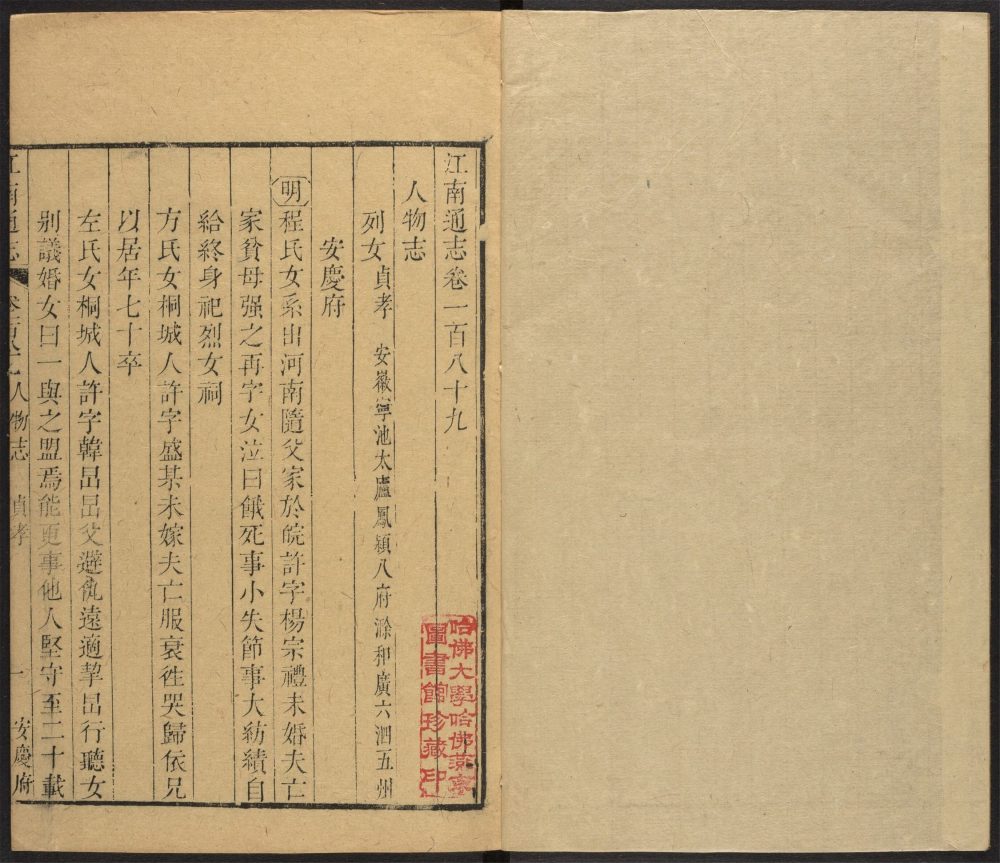 江南通志卷一百八十九
人物志
列女貞孝　安徽寧池太廬鳳潁八府滁和廣六泗五州
安慶府
明程氏女系出河南隨父家於皖許字楊宗禮未婚夫亡
家貧母强之再字女泣曰餓死事小失節事大紡績自
給終身祀烈女祠
方氏女桐城人許字盛某未嫁夫亡服衰徃哭歸依兄
以居年七十卒
左氏女桐城人許字韓昷昷父避仇遠適挈昷行聽女
别議婚女曰一與之盟焉能更事他人堅守至二十載
江南通志　人物志　貞孝　一　安慶府
哈佛大學哈佛燕京
圖書館珍藏印